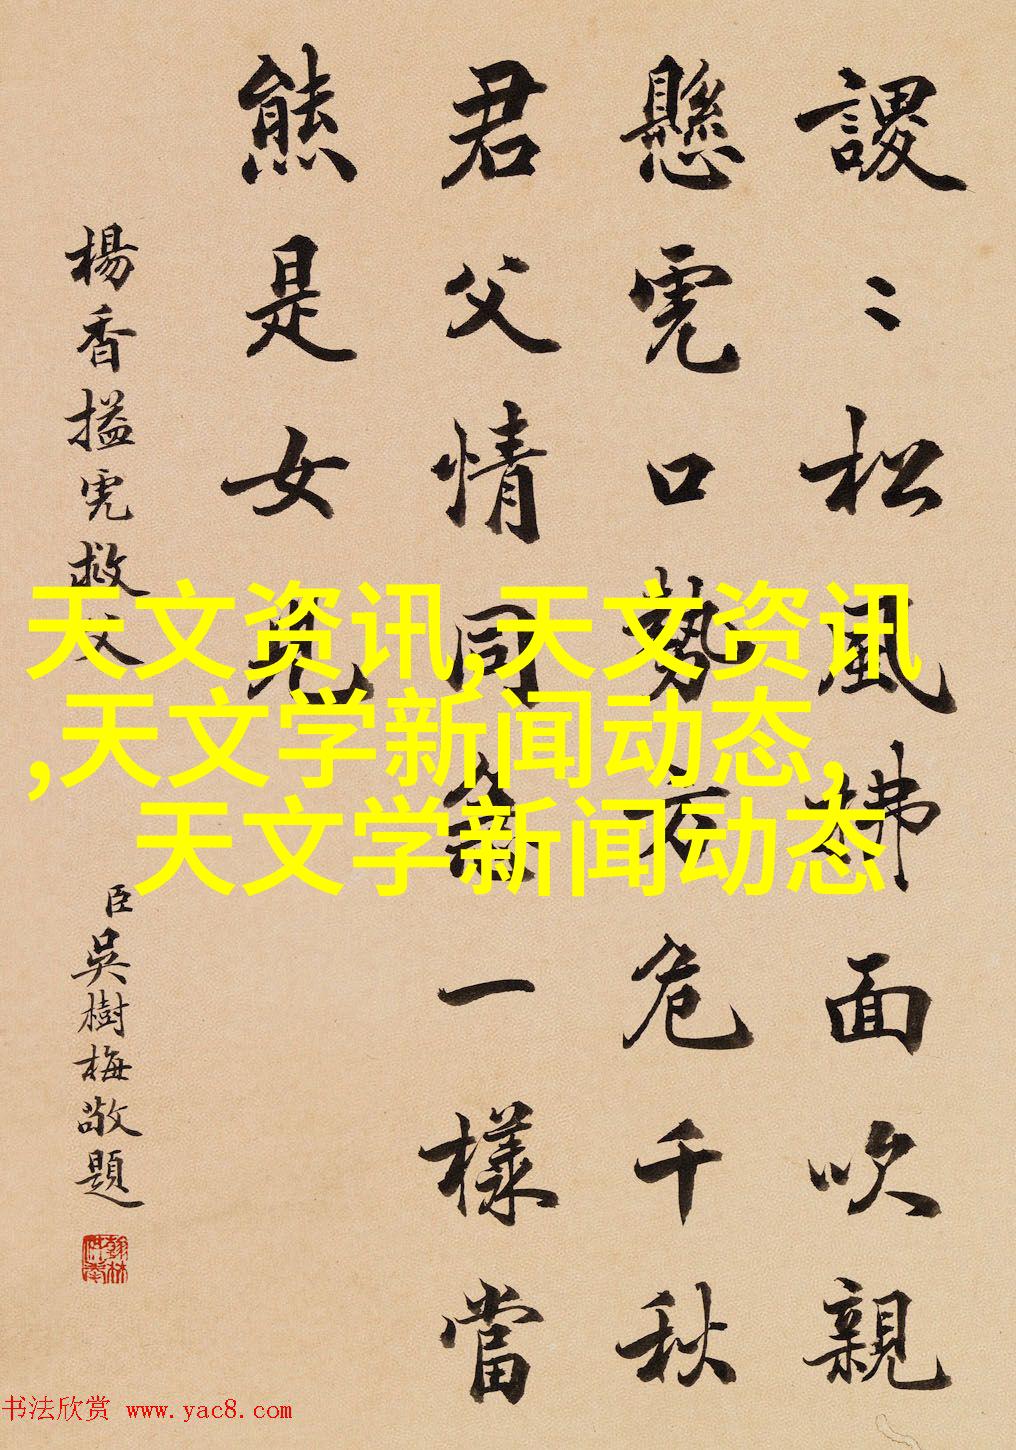 謖〻松風拂面吹親
懸虎口勢方危千秋
君父情同一樣當
熊是女兒
楊香搤虎救父
臣吳樹梅敬題
翰林供奉
天文资讯,天文资讯
,天文学新闻动态,
天文学新闻动态
书法欣赏 www.yac8.com